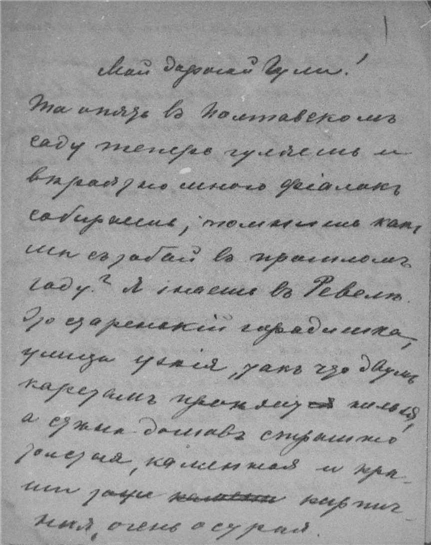 1
Мой дорогой Гули!
Ты опять въ Полтавскомъ
саду теперь гуляешь и
вѣроятно много фіалокъ
собираешь; помнишь какъ
мы съ тобой въ прошломъ
году? Я знаешь въ Ревелѣ.
Это старенькій городишка,
улицы узкія, такъ что двумъ
каретамъ нельзя,
а стѣны домовъ страшно
толстыя, каменныя и кры-
ши тоже кирпич-
ныя, очень острыя.